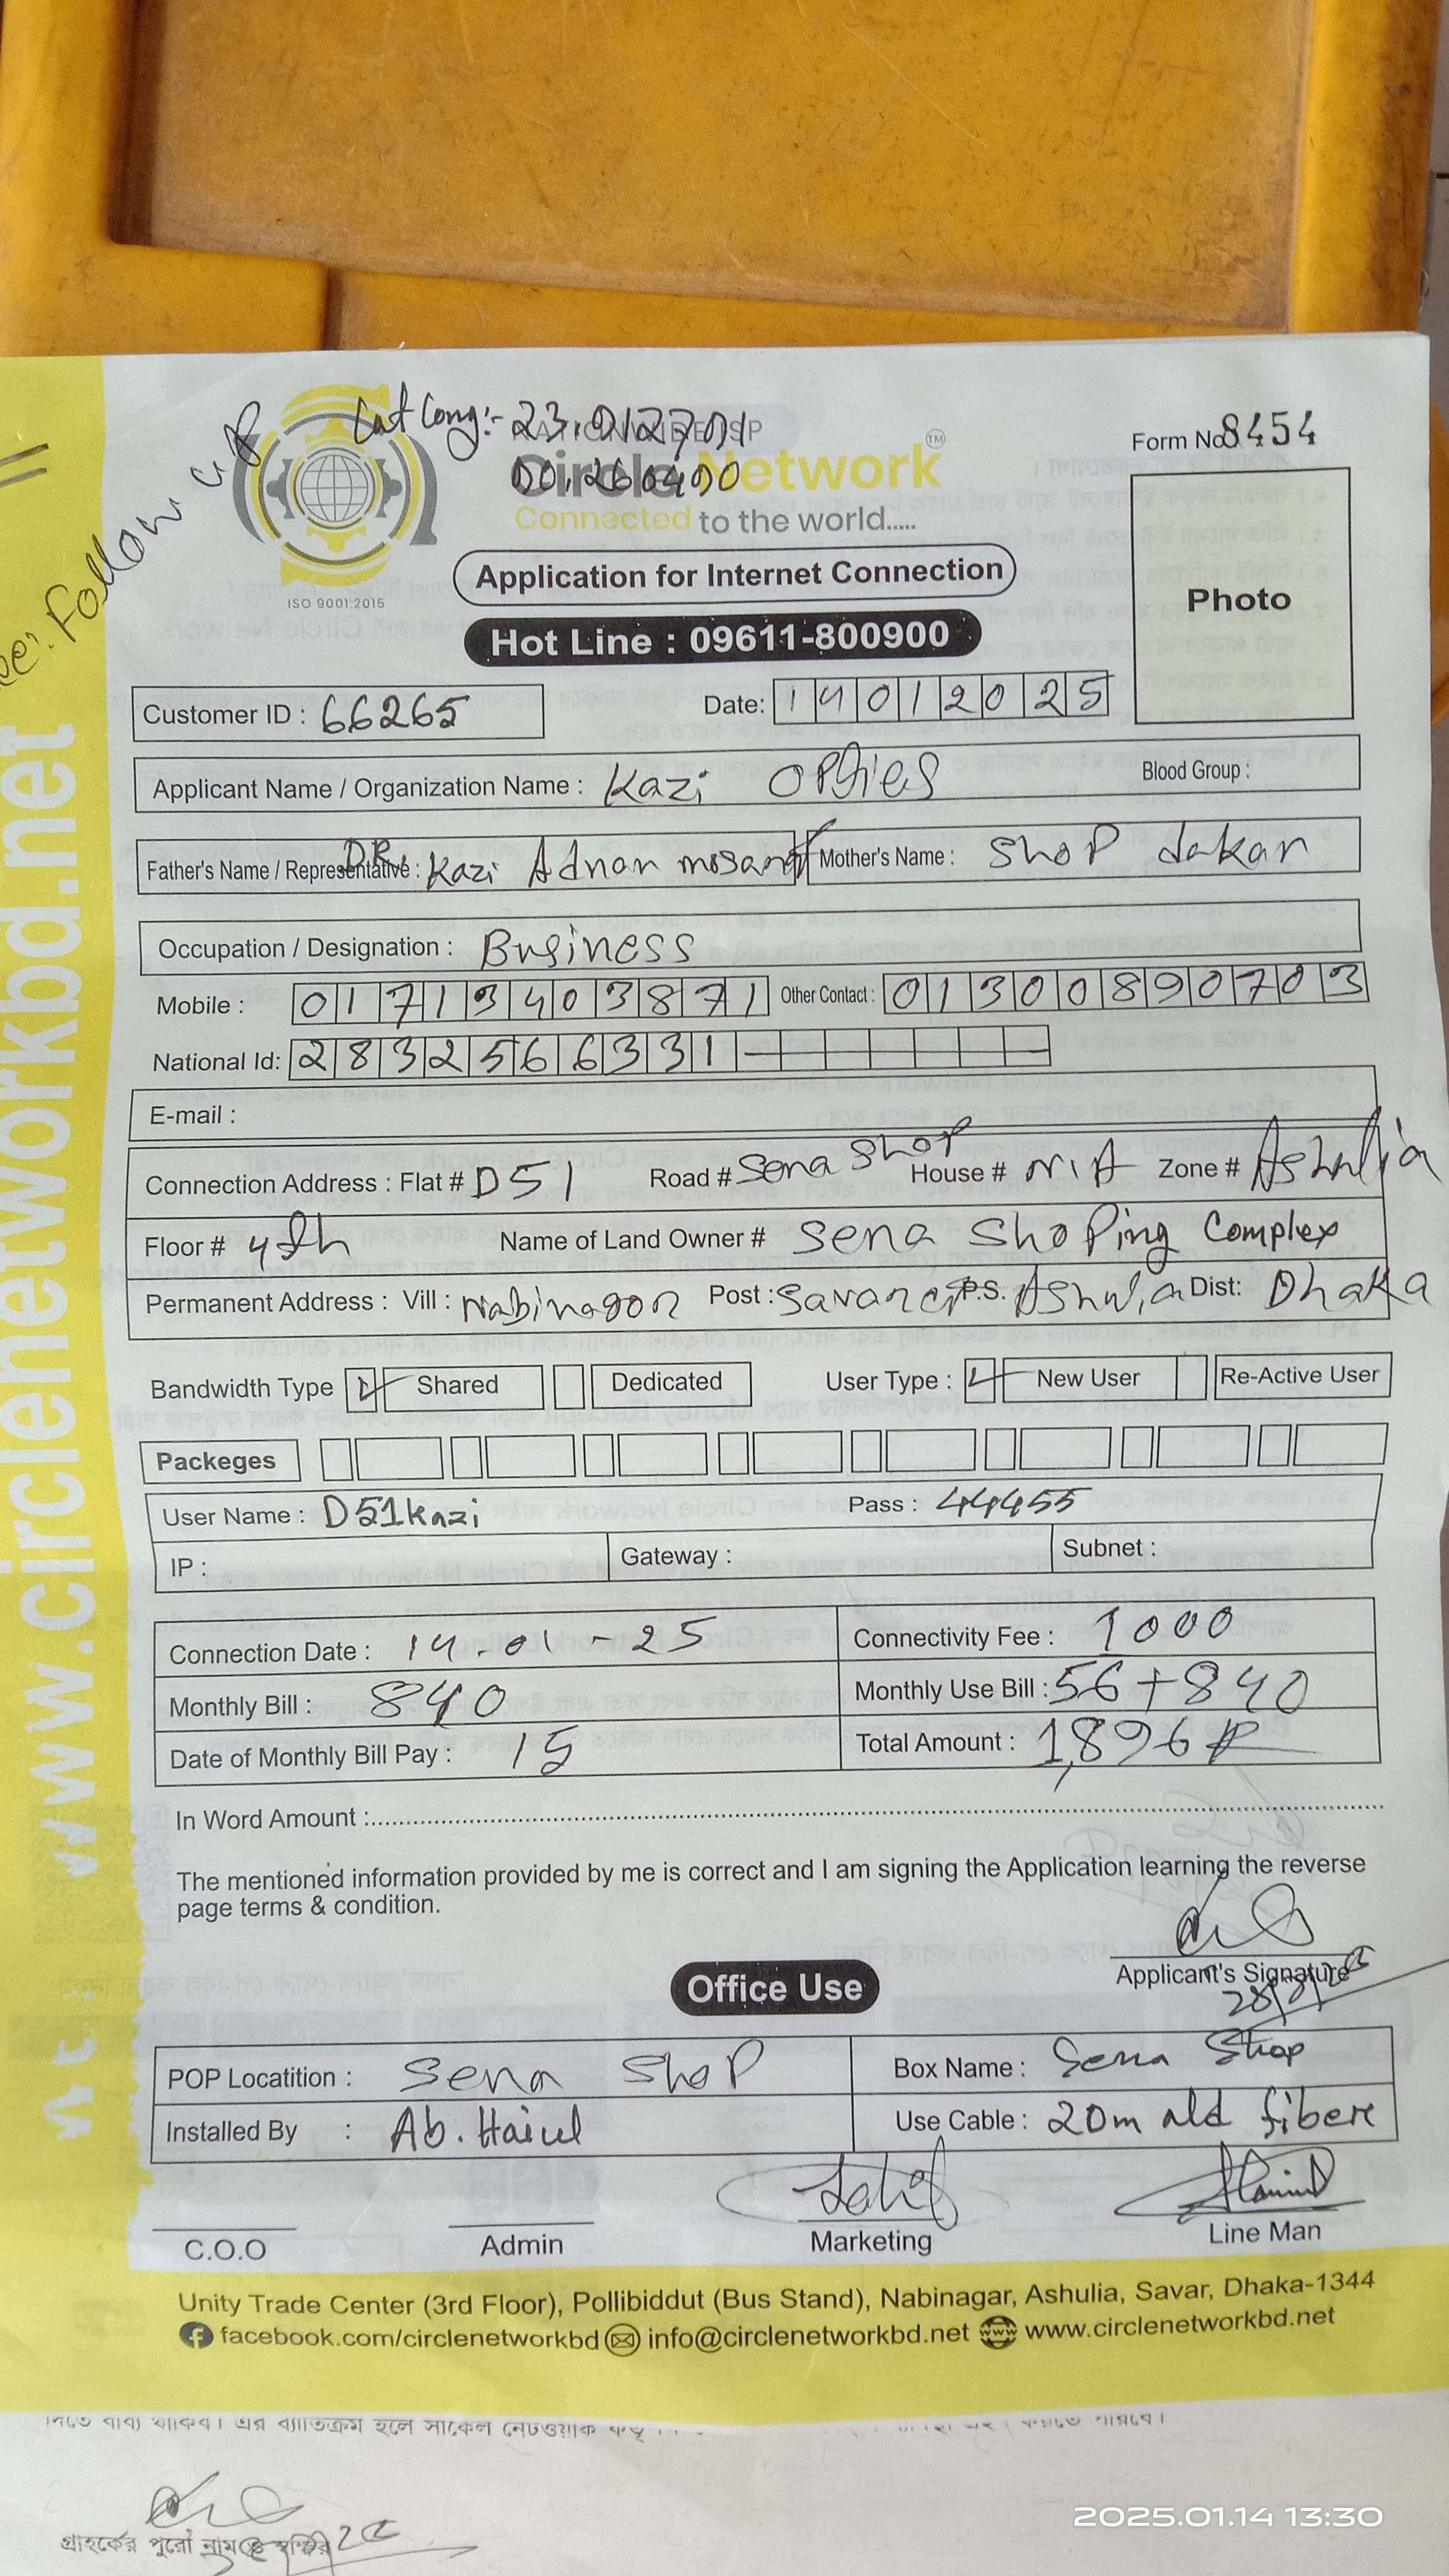 Lat Long:- 23.912701
NATIONWIDE ISP
Form No 8454
Circle Network TM
Connected to the world.....
Follow up
ISO 9001:2015
Application for Internet Connection
Photo
Hot Line : 09611-800900
Customer ID : 66265 Date: 14012025
Applicant Name / Organization Name : Kazi Opties Blood Group :
Father's Name / Representative : DR. Kazi Adnan Mother's Name : ShoP dokan
Occupation / Designation : Business
Mobile : 01713403871 Other Contact : 01300890703
National Id: 2832566331
E-mail :
Connection Address : Flat # D51 Road # Sena Shop House # N/A Zone # Ashulia
Floor # 4th Name of Land Owner # Sena ShoPing Complex
Permanent Address : Vill : Nabinagor Post : Savar P.S. Ashulia Dist: Dhaka
Bandwidth Type Shared Dedicated User Type : New User Re-Active User
Packeges
User Name : D51kazi Pass : 44455
IP : Gateway : Subnet :
Connection Date : 14-01-25 Connectivity Fee : 1000
Monthly Bill : 840 Monthly Use Bill : 56+840
Date of Monthly Bill Pay : 15 Total Amount : 1,896
In Word Amount :
The mentioned information provided by me is correct and I am signing the Application learning the reverse
page terms & condition.
Applicant's Signature
Office Use
POP Locatition : Sena ShoP Box Name : Sena Shop
Installed By : Ab. Haiul Use Cable : 20m old fibere
C.O.O Admin Marketing Line Man
Unity Trade Center (3rd Floor), Pollibiddut (Bus Stand), Nabinagar, Ashulia, Savar, Dhaka-1344
facebook.com/circlenetworkbd info@circlenetworkbd.net www.circlenetworkbd.net
www.circlenetworkbd.net
গ্রাহকের পুরো নাম ও স্বাক্ষর
2025.01.14 13:30